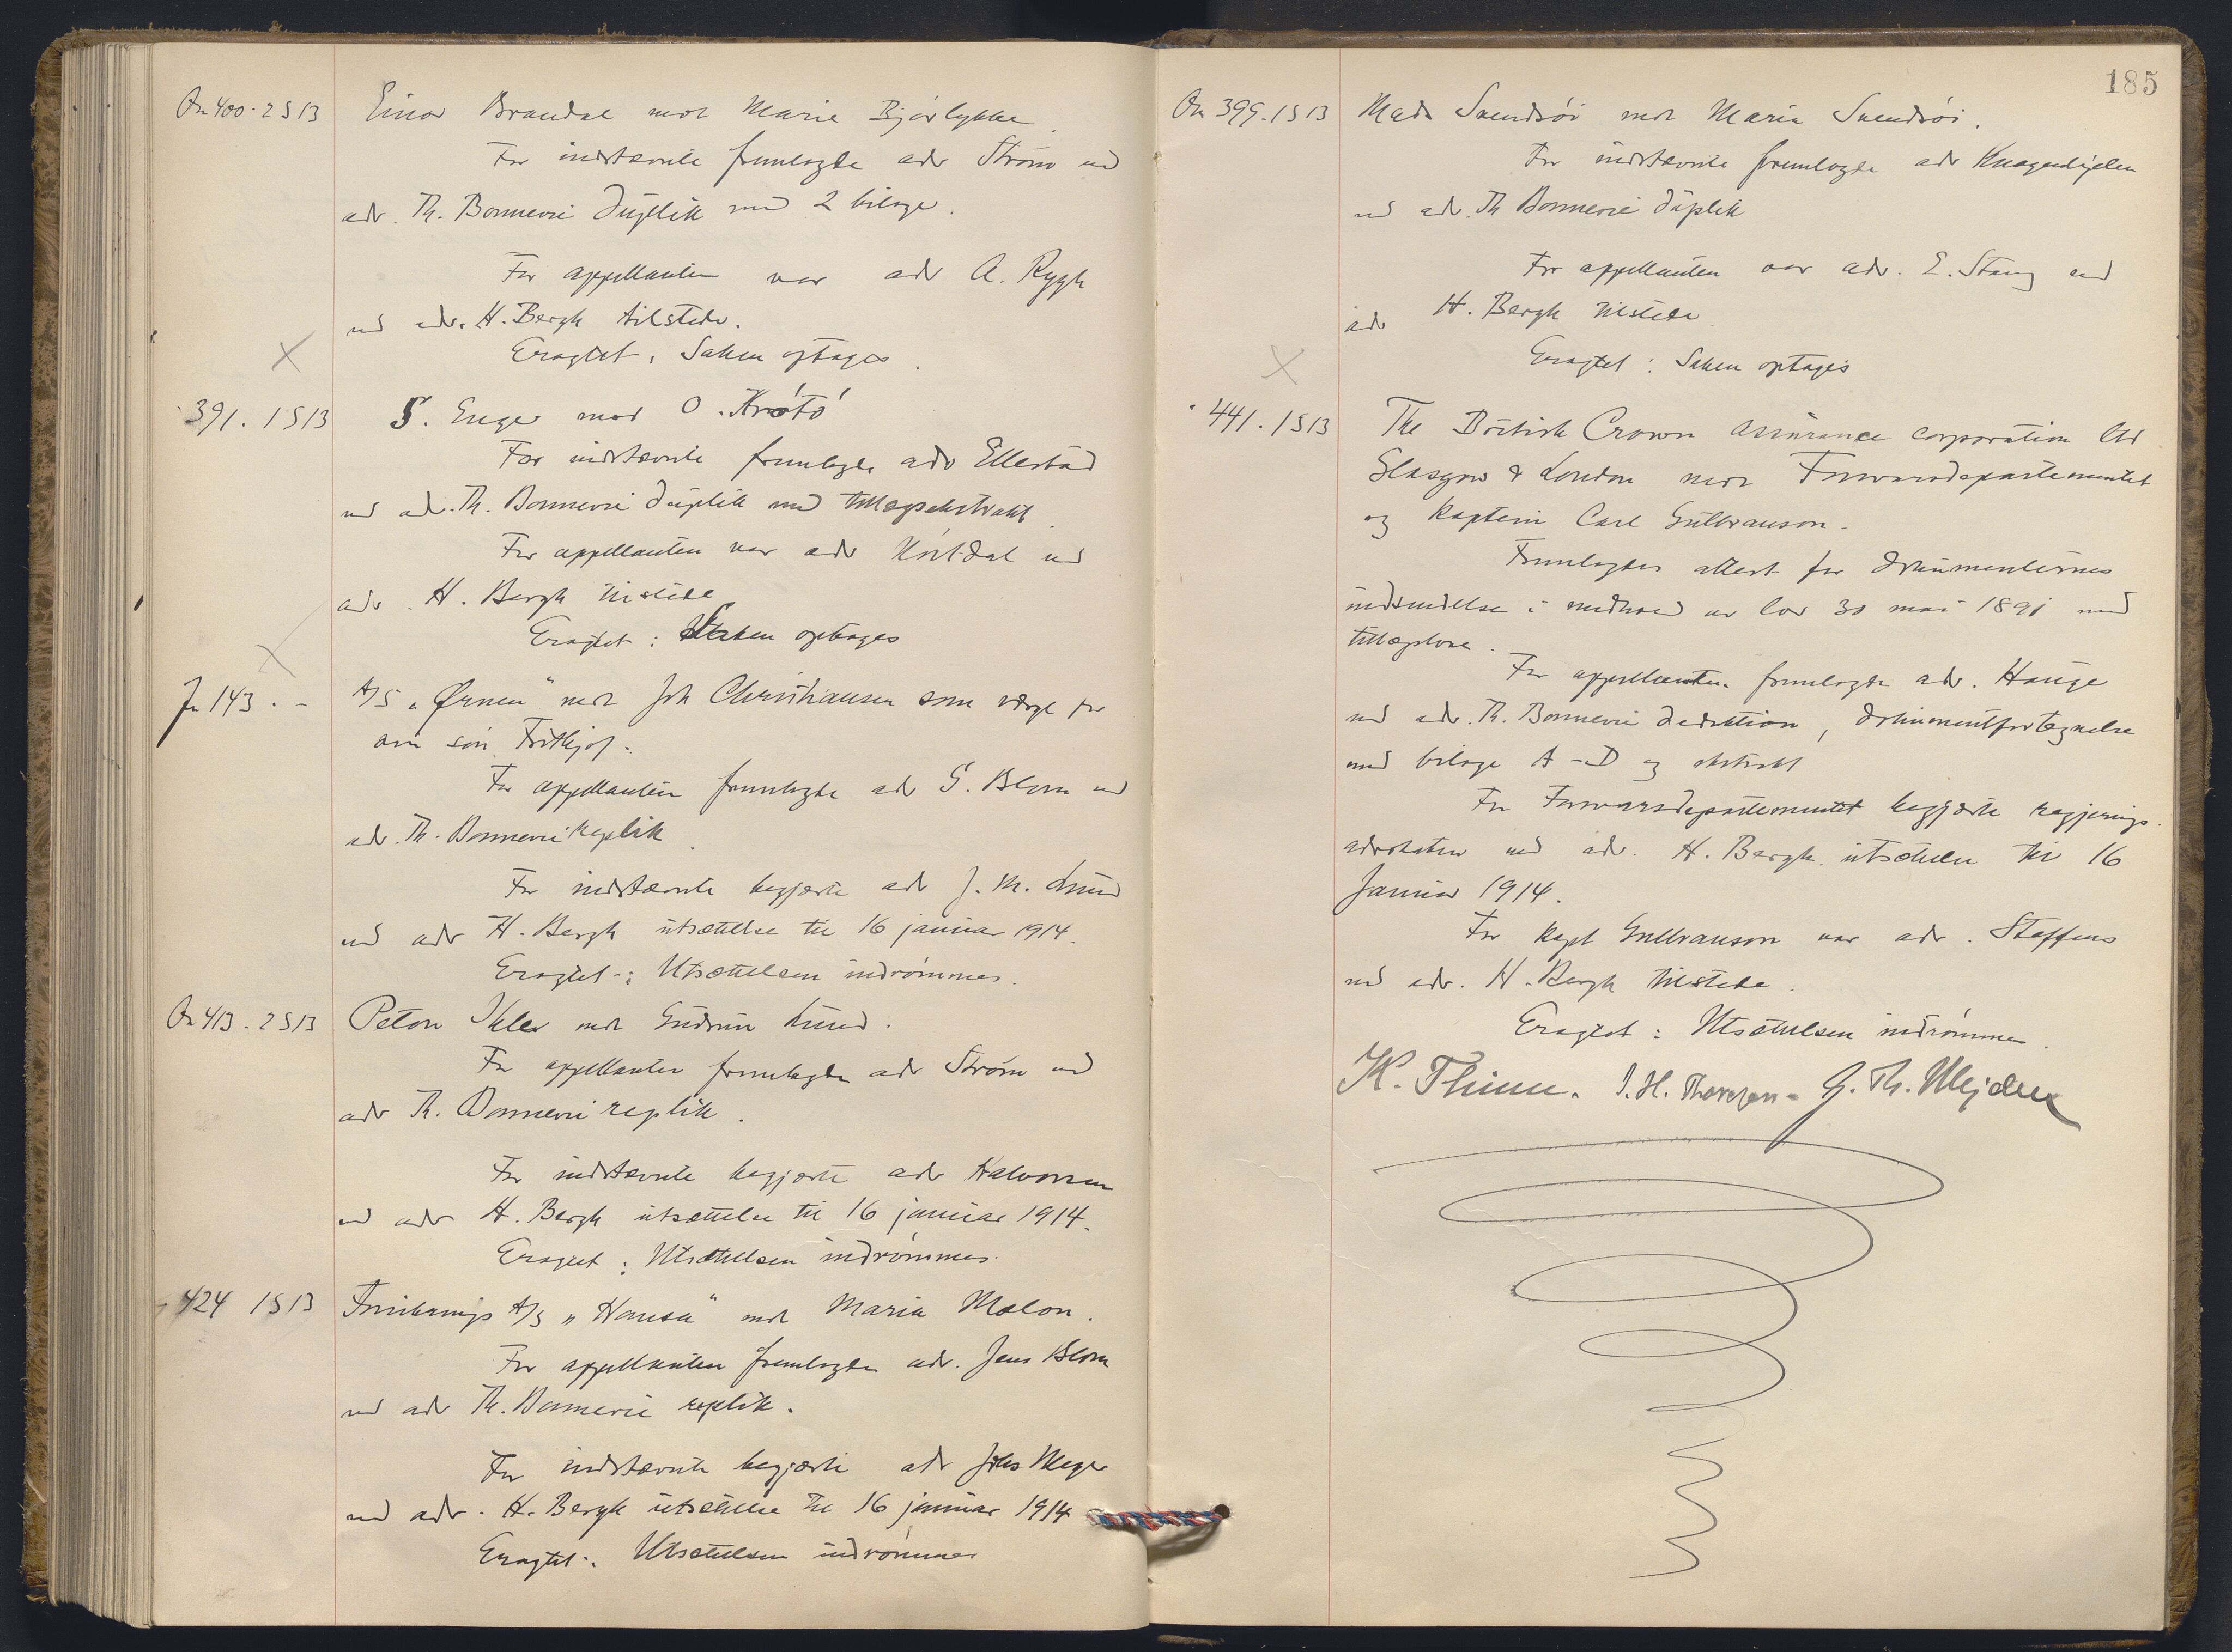 On 400. 2 S 13 Einar Brandal mot Marie Bjørlykke.
For indstevnte fremlagde adv Strøm ved
adv. Th. Bonnevie duplik med 2 bilage.
For appellanten var adv A. Rygh
ved adv. H. Bergh tilstede.
Eragtet: Saken optages.
391. 1 S 13 S. Enger mot O. Krótó
For indstevnte fremlagde adv Ellestad
ved adv. Th. Bonnevie duplik med tillægsekstrakt.
For appellanten var adv
ved
adv. H. Bergh tilstede.
Eragtet: Saken optages
Jr 143. - A/S „Ørnen" mot Joh Christiansen som værge for
sin søn Frithjof.
For appellanten fremlagde adv G. Blom ved
adv. Th. Bonnevie replik.
For indstævnte begjærte adv J. M. Lund
ved adv H. Bergh utsættelse til 16 januar 1914.
Eragtet: Utsættelsen indrømmes.
On 413. 2 S 13 Peton Ihler mot Gudrun Lund.
For appellanten fremlagde adv Strøm ved
adv Th. Bonnevie replik.
For indstævnte begjærte adv Halvorsen
ved adv H. Bergh utsættelse til 16 januar 1914.
Eragtet: Utsættelsen indrømmes.
424 1 S 13 Forsikrings A/S „Hansa" mot Maria Malon.
For appellanten fremlagde adv. Jens Blom
ved adv Th. Bonnevie replik.
For indstævnte begjærte adv Johs Meyer
ved adv. H. Bergh utsættelse til 16 januar 1914
Eragtet: Utsættelsen indrømmes
185
On 399. 1 S 13 Mads Svendsøi mot Maria Svendsøi.
For indstevnte fremlagde adv Knagenhjelm
ved adv. Th Bonnevie duplik
For appellanten var adv. E. Stang ved
adv H. Bergh tilstede
Eragtet: Saken optages
441. 1 S 13 The British Crown assurance corporation ltd
Glasgow & London mot Forsvarsdepartementet
og kaptein Carl Gulbranson.
Fremlagdes attest for dokumenternes
indsendelse i medhold av lov 30 mai 1891 med
tillægslove.
For appellanten fremlagde adv. Hauge
ved adv. Th. Bonnevie deduktion, dokumentfortegnelse
med bilage A-D og ekstrakt
For Forsvarsdepartementet begjærte regjerings-
advokaten ved adv. H. Bergh utsættelse til 16
Januar 1914.
For kapt Gulbranson var adv. Steffens
ved adv. H. Bergh tilstede.
Eragtet: Utsættelsen indrømmes.
K. Thinn. J. H. Thoresen. G. Th. Mejdell